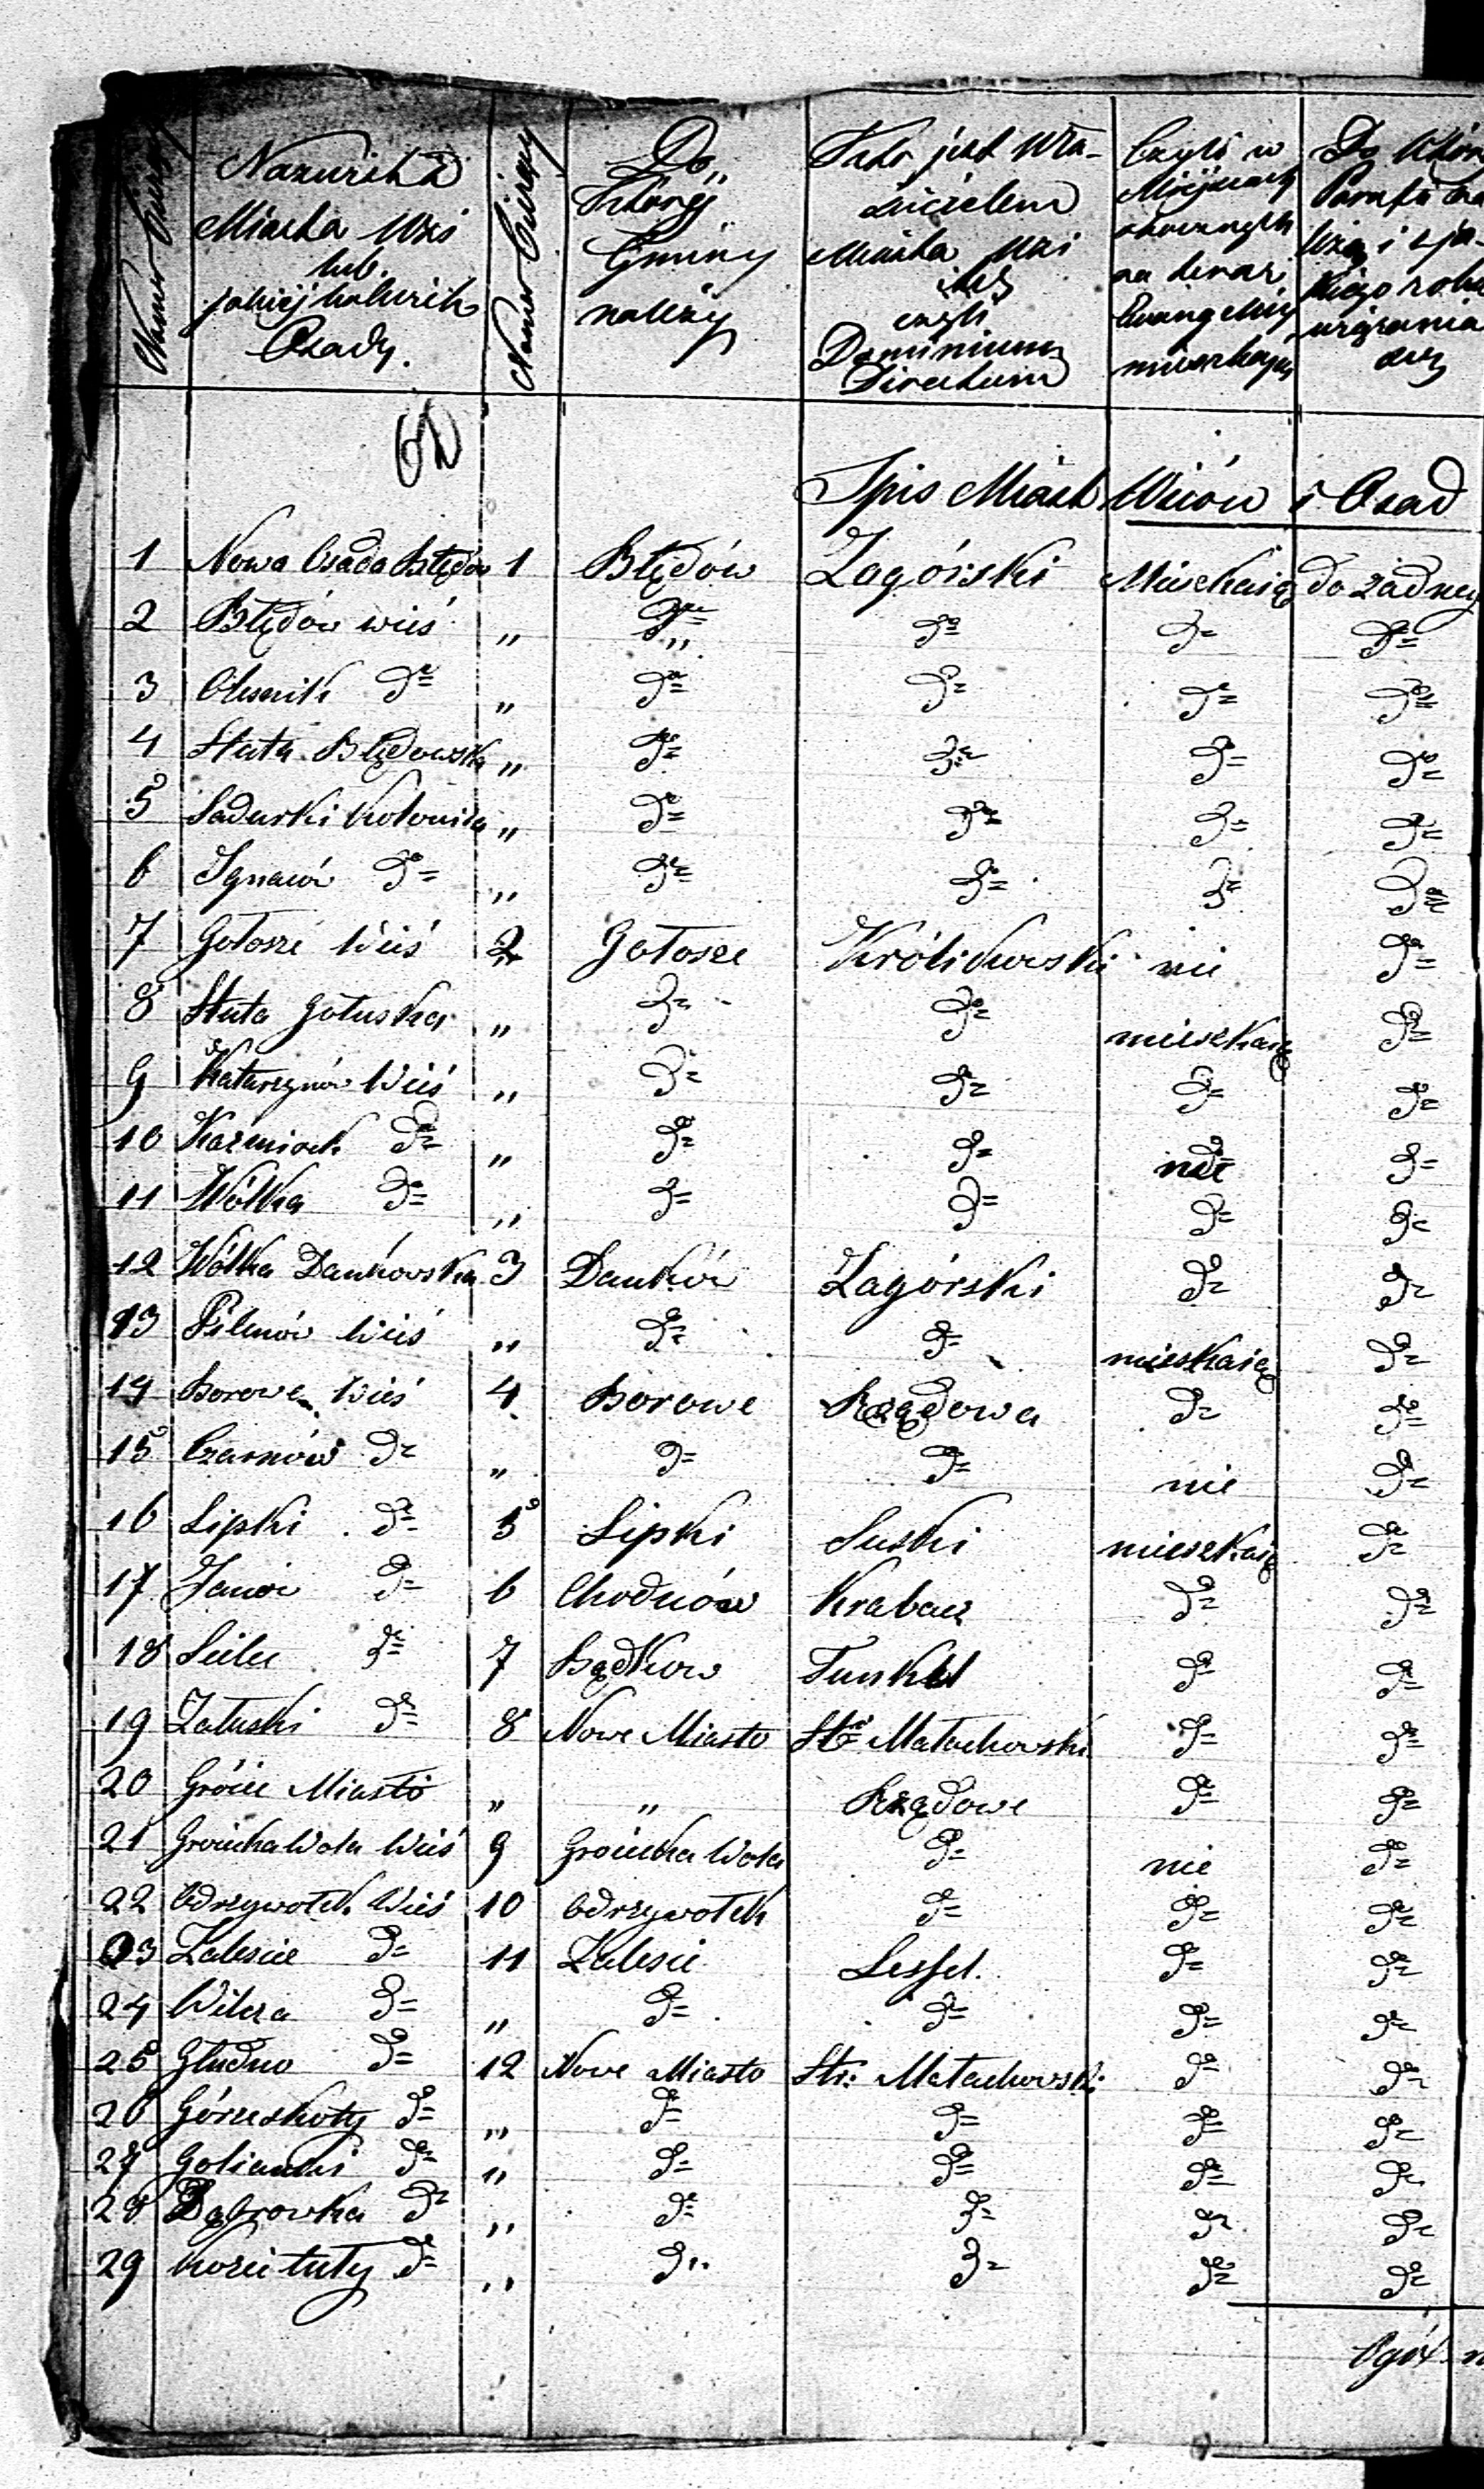 Numer bieżący
Nazwiska
Miasta Wsi
lub
jakiéj kolwiek
Osady.
Numer bieżący
Do
któréj
Gminy
należy
Miasta Wsi
czyli
Dominium
Directum
Czyli w
na teraz
Ewangelicy
mieszkają
Do któr
Parafii
62
Spis Miast Wsiów i Osad
1 Nowa Osada Błędów 1 Błędów Zagórski Mieskaią do żadney
2 Błędów wieś „ do do do do
3 do „ do do do do
4 Huta Błędowska „ do do do do
5 Sadurki Kolonia „ do do do do
6 Ignaców do „ do do do do
7 Gołosze Wieś 2 Gołosze Królikowski nie do
8 Huta Gołuska „ do do mieszkaią do
9 Katarzynów Wieś „ do do do do
10 Kaźmirek do „ do do nie do
11 Wólka do „ do do do do
12 Wólka Dankowska 3 Danków Zagórski do do
13 Wieś „ do do mieskaią do
14 Borowe Wieś 4 Borowe Rządowa do do
15 Czarnów do „ do do nie do
16 Lipki do 5 Lipki Suski mieszkaią do
17 do 6 Chodnów do do
18 do 7 Bądkow do do
19 Załuski do 8 Nowe Miasto Małachowski do do
20 Gróiec Miasto „ „ Rządowe do do
21 Groiecka Wola Wieś 9 Groiecka Wola do nie do
22 Odrzywołek Wieś 10 Odrzywołek do do do
23 Zalesie do 11 Zalesie Lessel. do do
24 Wilcza do „ do do do do
25 Głudno do 12 Nowe Miasto Małachowski do do
26 do „ do do do do
27 Golianki do „ do do do do
28 Dąbrowka do „ do do do do
29 Kozietuły do „ do do do do
Ogół